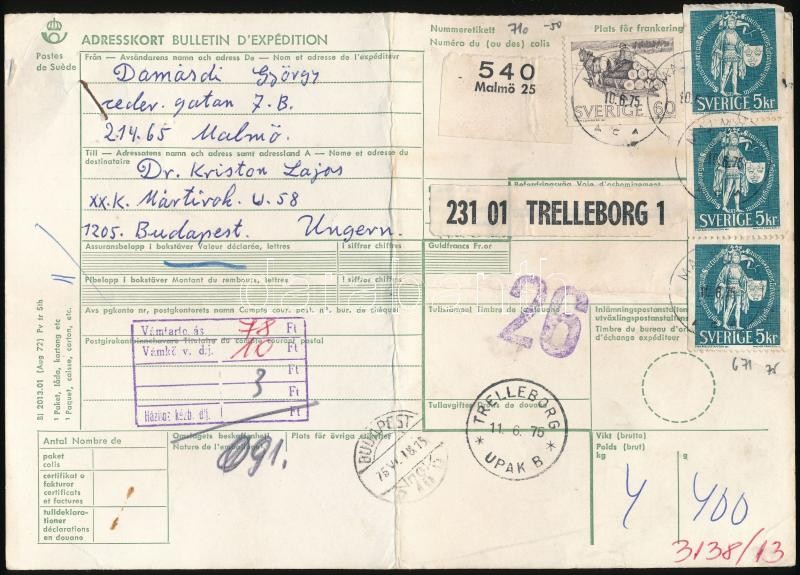 Postes
de Suède
ADRESSKORT BULLETIN D'EXPÉDITION
Från – Avsändarens namn och adress De – Nom et adresse de l'expéditeur
Damásdi György
redergatan 7. B.
214.65 Malmö.
Till – Adressatens namn och adress samt adressland A – Nom et adresse du
destinataire
Dr. Kriston Lajos
xx.K. Mártirok u. 58
1205. Budapest. Ungern.
Assuransbelopp i bokstäver Valeur déclarée, lettres
i siffror chiffres
Pfbelopp i bokstäver Montant du rembours, lettres
i siffror chiffres
Avs pgkonto nr, postgkontorets namn Compte cour. post. n°, bur. de chèques
Postgirokontoinnehavare Titulaire du compte courant postal
Vámtartozás 78 Ft
Vámkö v. díj. 10 Ft
Ft
3 Ft
Házhoz kézb. díj. Ft
Bl 2013.01 (Aug 72) Pv tr 5th
1 Paket, låda, kartong etc
1 Paquet, caisse, carton, etc.
Antal Nombre de
paket
colis
certifikat o
fakturor
certificats
et factures
tulldeklara-
tioner
déclarations
en douane
Omslagets beskaffenhet
Nature de l'emballage
Plats för övriga etiketter
091.
BUDAPEST
75 VI. 18. 15
Nummeretikett
Numéro du (ou des) colis
710
-50
Plats för frankering
540
Malmö 25
SVERIGE 60
10.6.75
SVERIGE 5kr
SVERIGE 5kr
SVERIGE 5kr
Befordringsväg Voie d'acheminement
231 01 TRELLEBORG 1
Guldfrancs Fr.or
26
Tullstämpel Timbre de la douane
Inlämningspostanstalten
utväxlingspostanstalten
Timbre du bureau d'or
d'échange expéditeur
671
75
Tullavgifter Droits de douane
TRELLEBORG
11. 6. 75
* UPAK B *
Vikt (brutto)
Poids (brut)
kg
g
4
400
3138/13
darabanth